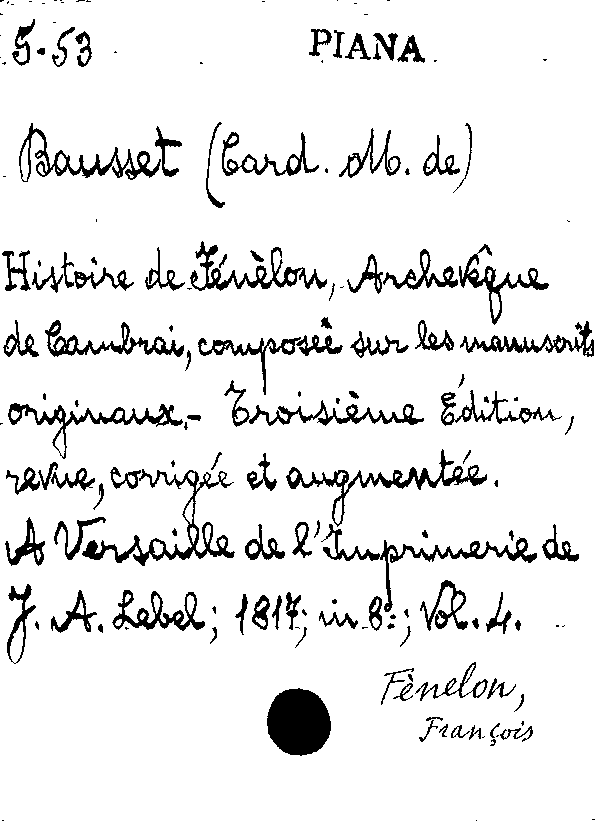 5.53 PIANA
Bausset (Card. M. de)
Histoire de Fénèlon, Archevêque
de Cambrai, composeè sur les manuscrits
originaux.- Troisième Édition,
revue, corrigée et augmentée.
A Versaille de l'Imprimerie de
J. A. Lebel; 1817; in 8º; Vol. 4.
Fènelon,
François